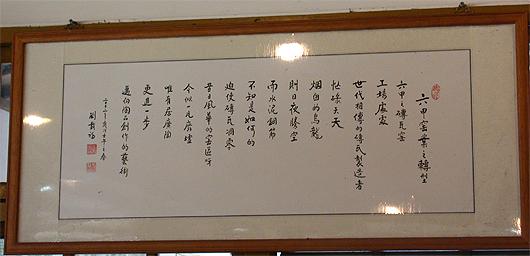 六甲窑業之轉型
六甲之磚瓦窑
工場處處
世代相傳的磚瓦製造者
忙碌了天
烟囪的烏龍
則日夜騰空
而水泥鋼筋
不知是如何的
迫使磚瓦凋零
昔日風華的窑區呀
今似一瓦廢墟
唯有居廣陶
更進一步
邁向陶品創作的藝術